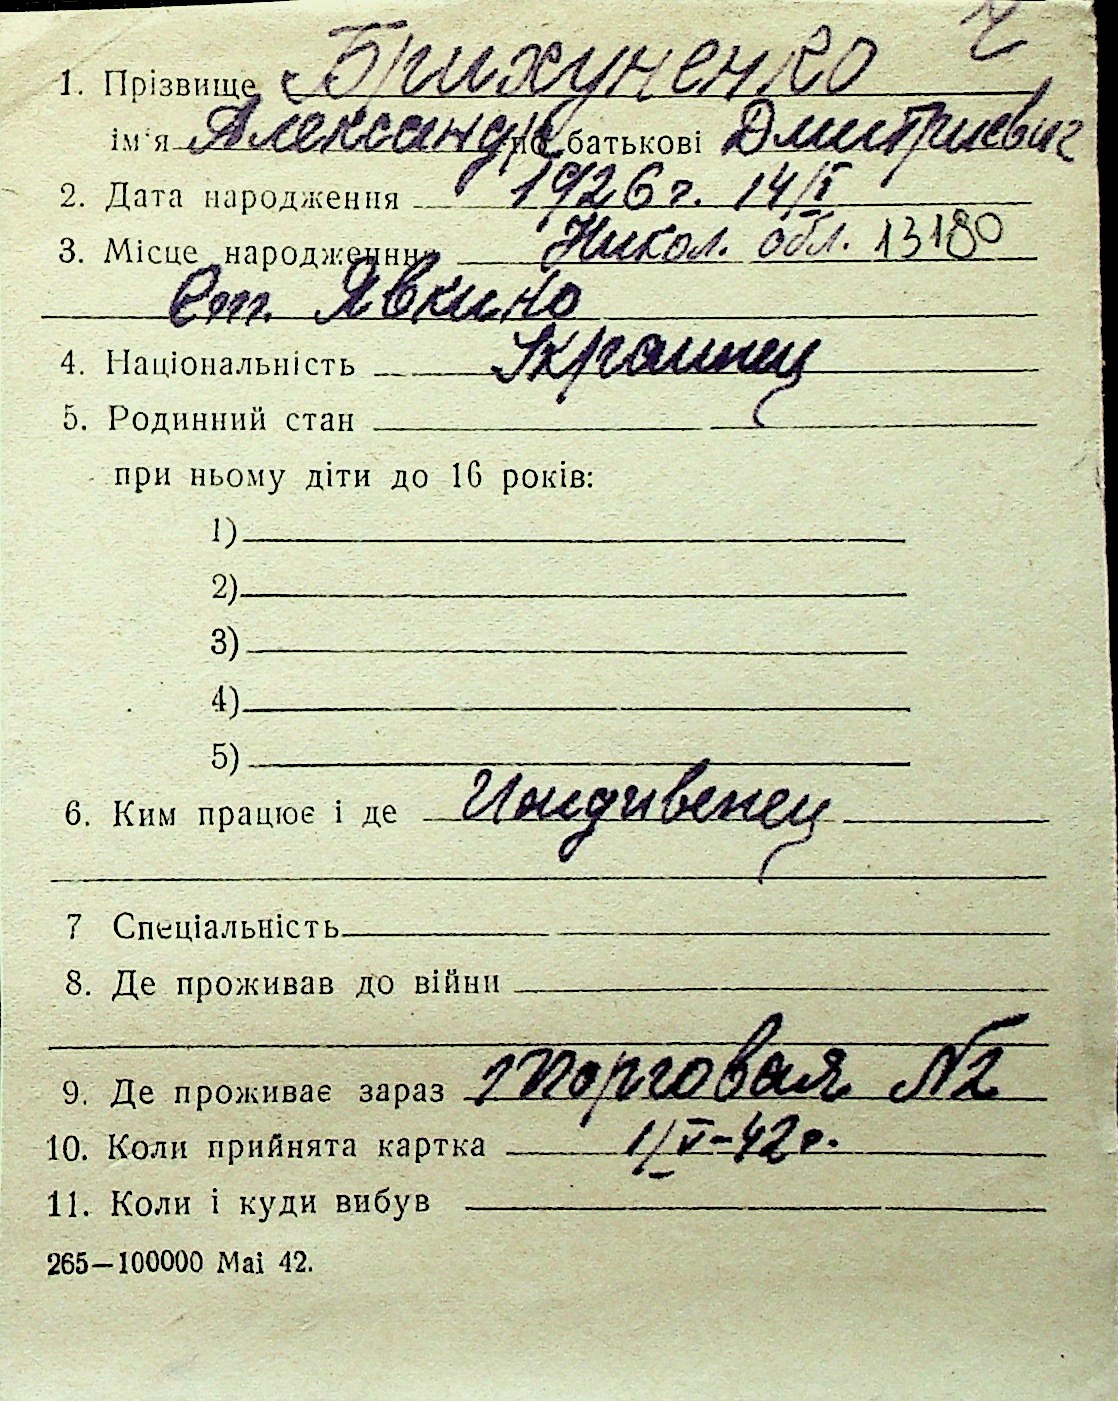 1. Прізвище Брихуненко
ім'я Александр по батькові Дмитриевич
2. Дата народження 1926 г. 14/I
3. Місце народження Никол. обл. 13180
Ст. Явкино
4. Національність Украинец
5. Родинний стан
при ньому діти до 16 років:
1)
2)
3)
4)
5)
6. Ким працює і де Иждивенец
7 Спеціальність
8. Де проживав до війни
9. Де проживає зараз Торговая №2
10. Коли прийнята картка 1/V-42 г.
11. Коли і куди вибув
265—100000 Mai 42.